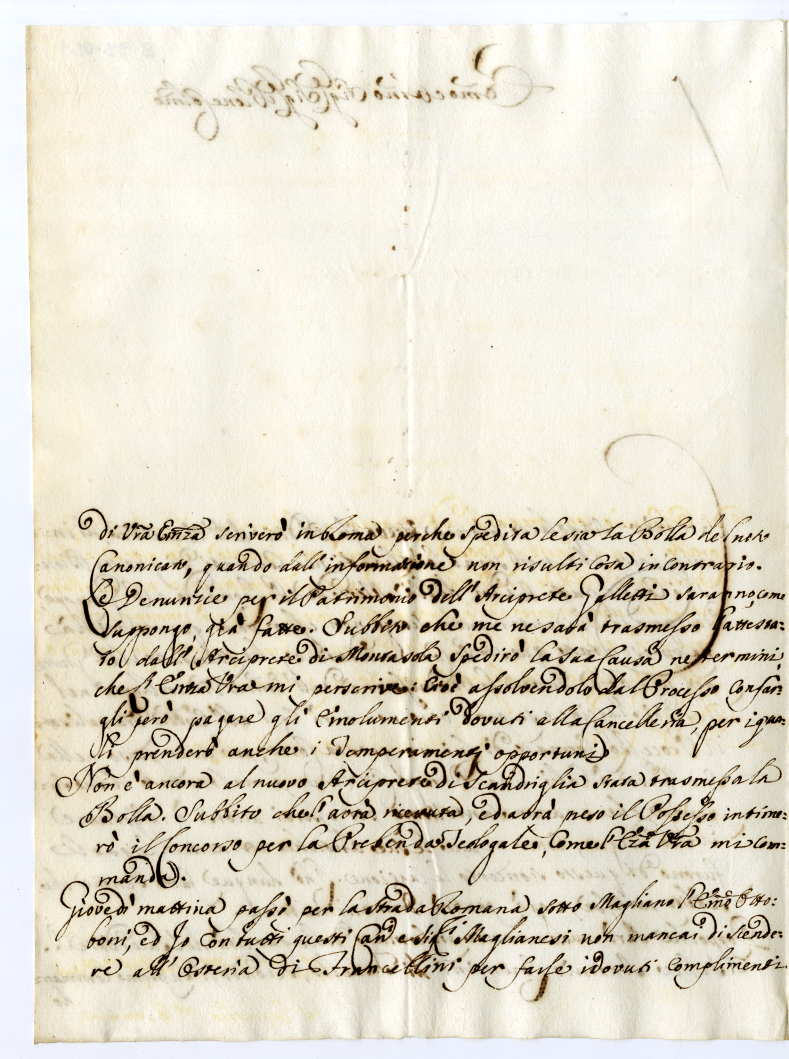 di Vrã Emzã scriverò in Roma perche spedita le sia la Bolla del noto
Canonicato, quando dall'informatione non risulti cosa in contrario.
Le Denuntie per il Patrimonio dell'Arciprete Galletti saranno, come
suppongo, già fatte. Subbito che me ne sarà trasmesso l'attesta-
to dall'Arciprete di Montasola spedirò la sua Causa ne termini,
che l'Emza Vra mi perscrive: Cioè assolvendolo dal Processo con far-
gli però pagare gli Emolumenti dovuti alla Cancelleria, per i qua-
li prenderò anche i Temperamenti opportuni
Non è ancora al nuovo Arciprete di Scandriglia stata trasmessa la
Bolla. Subbito che l'avrà ricevuta, ed avrà preso il Possesso intime-
rò il Concorso per la Prebenda Teologale, come l'Emzã Vrã mi com-
manda.
Giovedì mattina passò per la strada Romana sotto Magliano l'Emõ Otto-
boni, ed Io con tutti questi Canci e Sigri Maglianesi non mancai di scende-
re all'Osteria di Francellini per farle i dovuti complimenti